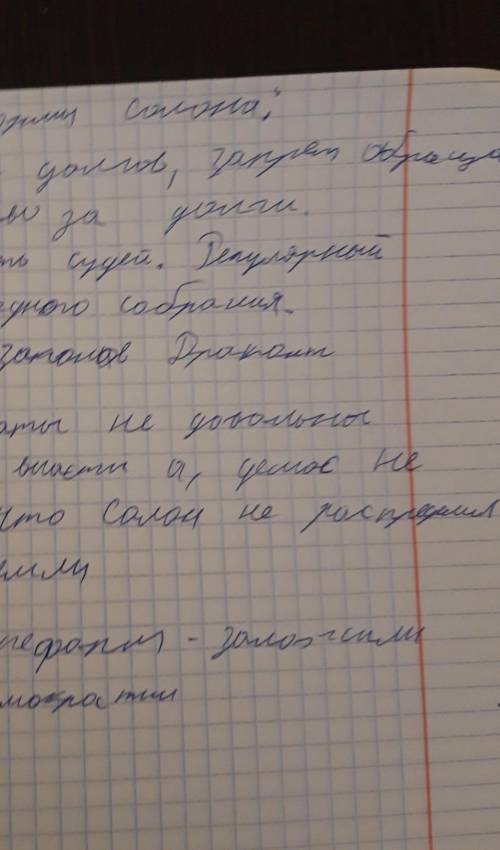 Солона:
долгов, запрет обраща
во за долги.
ть судей. Регулярный
одного собрания.
законов Драконт
аты не довольны
власти и, демос не
что Солон не распределил
емли
реформы - заложили
мократии